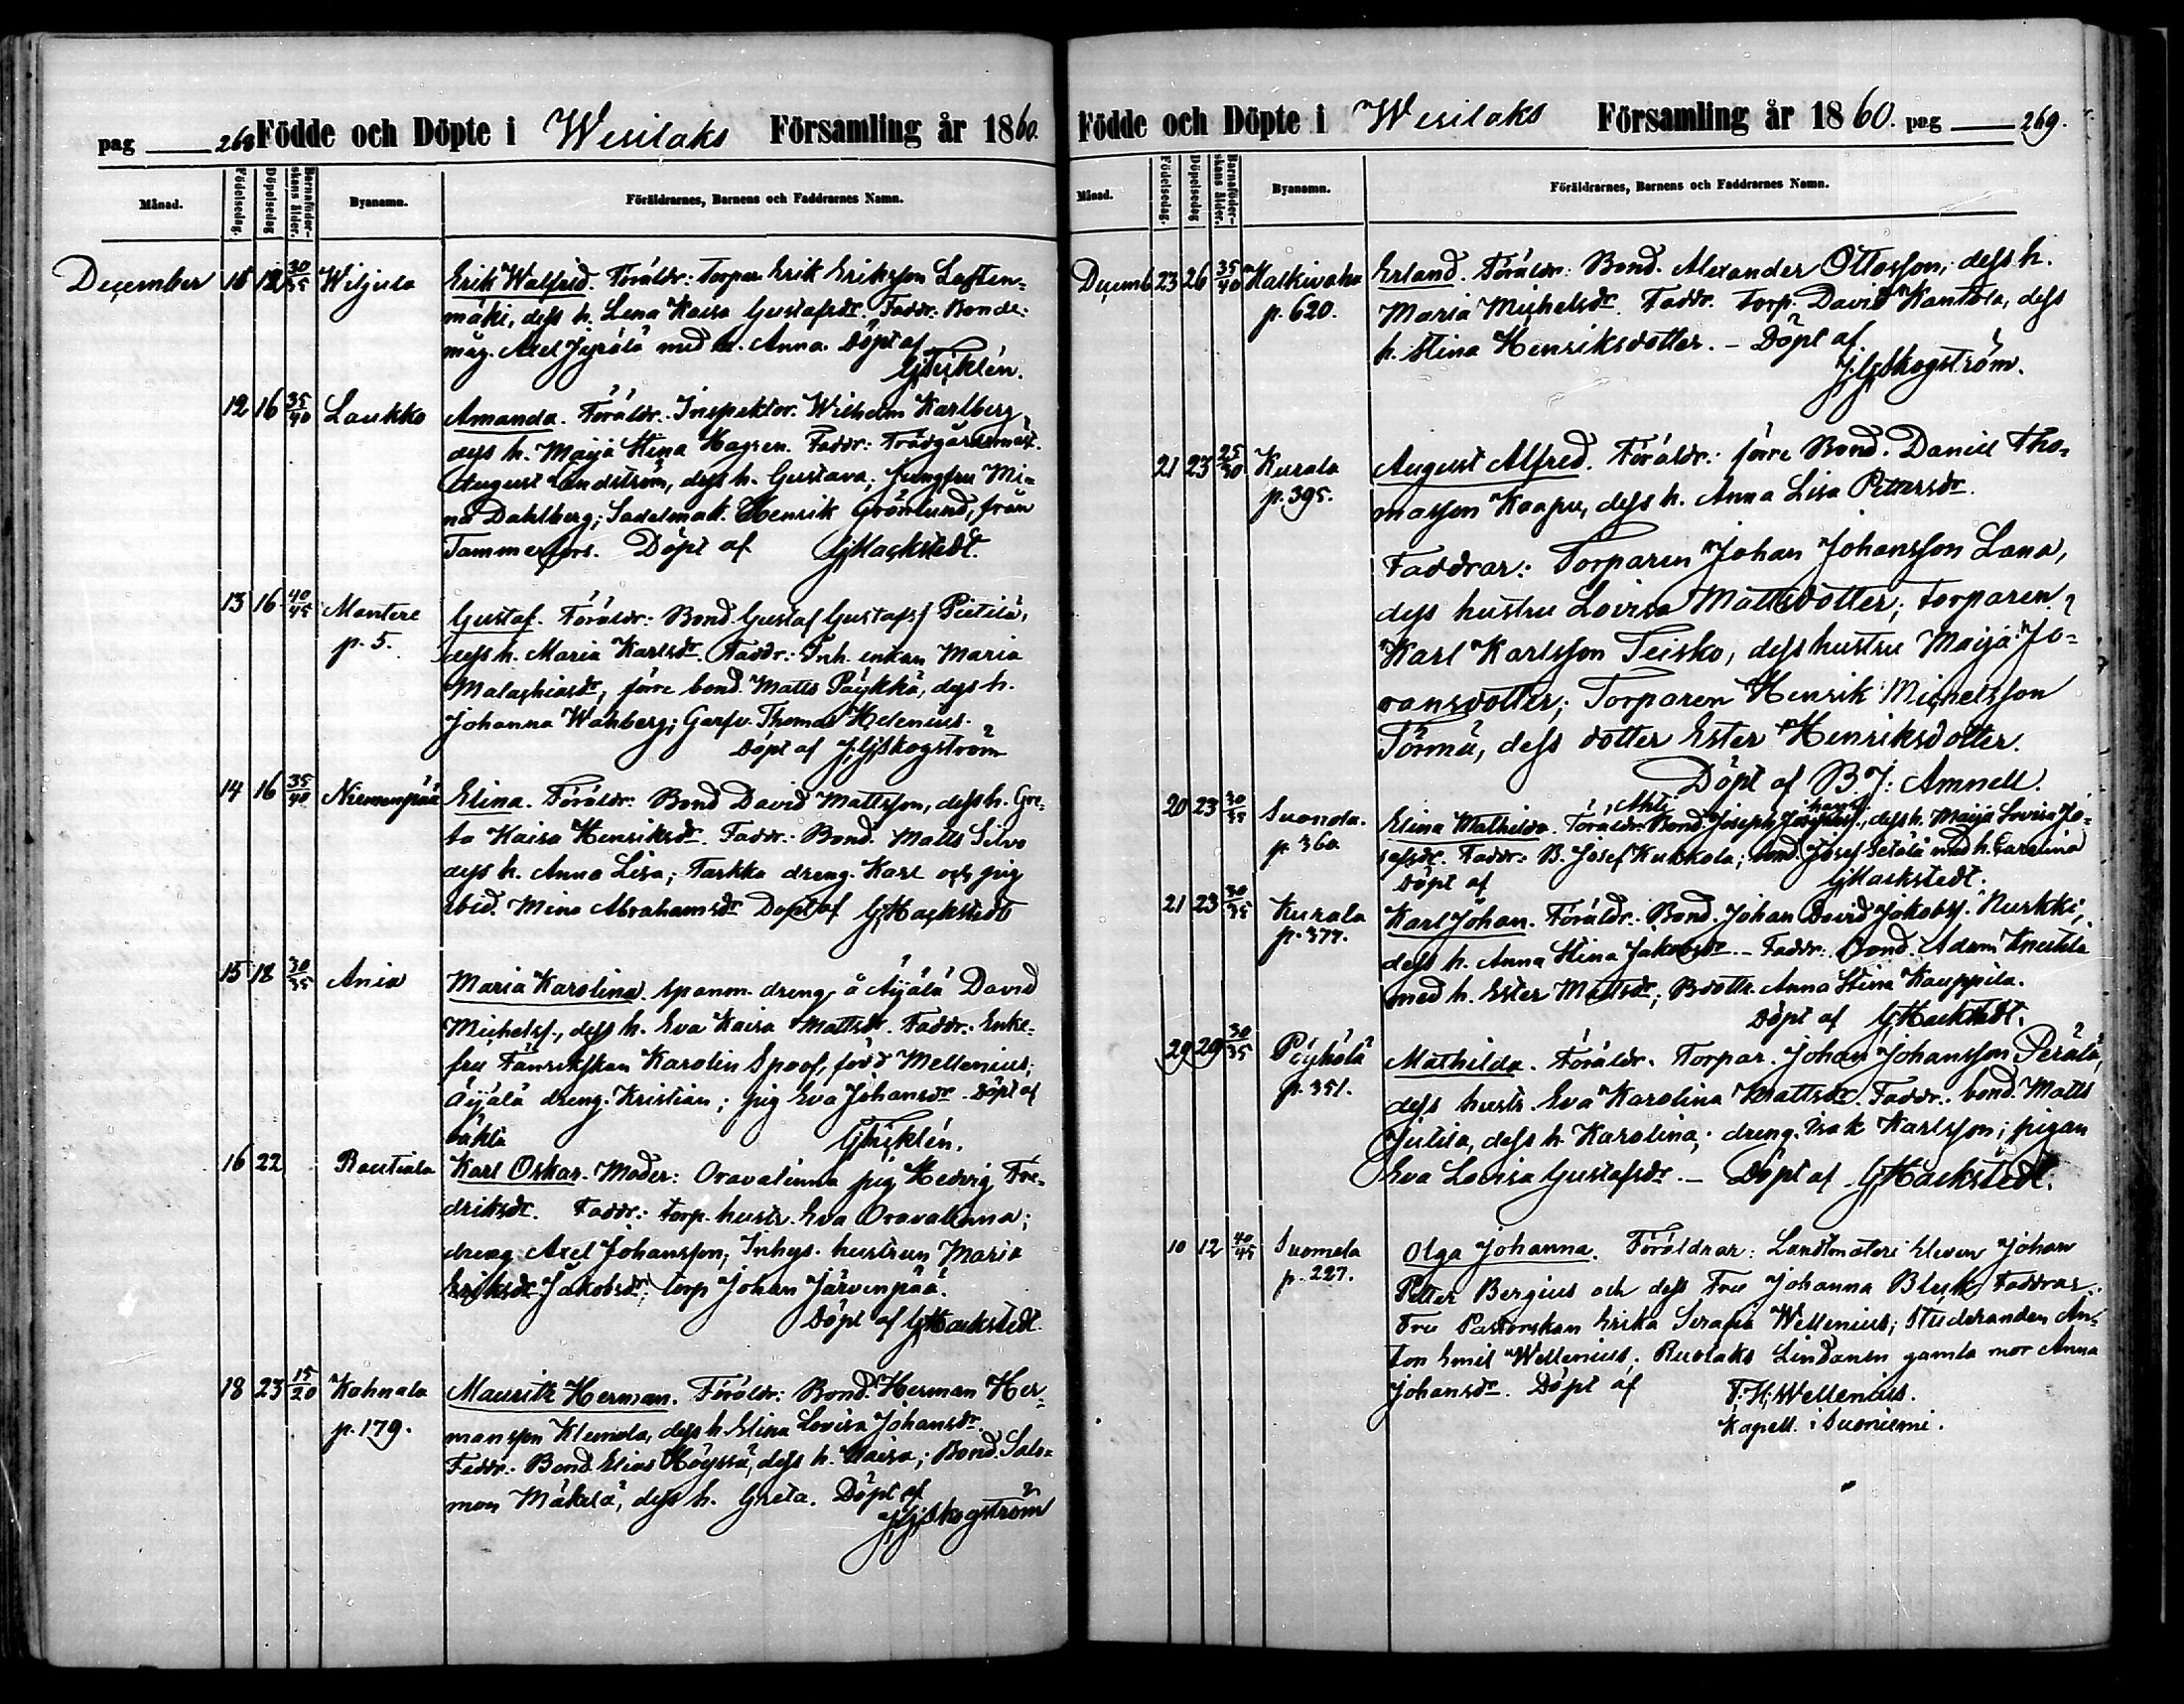 pag 268 Födde och Döpte i Wesilaks Församling år 1860.
Månad. Födelsedag. Döpelsedag Barnaföderskans ålder. Byanamn. Föräldrarnes, Barnens och Faddrarnes Namn.
December 15 18 30/35 Wiljula Erik Walfrid. Föräldr: Torpar Erik Eriksson Lasten-
mäki, dess h. Lena Kaisa Gustafsdr. Faddr: Bonde-
måg. Axel Jyrälä med h. Anna. Döpt af
12 16 35/40 Laukko Amanda. Föräldr. Inspektor. Wilhelm Karlberg,
dess h. Maija Stina Hagren. Faddr: Trädgårdsmäst.
August Lindström, dess h. Gustava; Jungfru Mi-
na Dahlberg; Sadelmak. Henrik Grönlund, från
Tammerfors. Döpt af GHackstedt.
13 16 40/45 Mantere Gustaf. Föräldr: Bond. Gustaf Gustafss Pietilä,
p. 5. dess h. Maria Karlsdr. Faddr: Inh. enkan Maria
Malachiasdr, förre bond. Matts Päykkä, dess h.
Johanna Wahberg; Garfv. Thomas Helenius.
Döpt af J.G.Skogström
14 16 35/40 Niemenpää Elina. Föräldr. Bond David Mattsson, dess h. Gre-
ta Kaisa Henriksdr. Faddr: Bond. Matts Silvo
dess h. Anna Lisa; Tarkka dreng. Karl och pig
ibid. Mina Abrahamsdr. Döpt af GHackstedt
15 18 30/35 Ania Maria Karolina. Spanm. dreng. å Äijälä David
Michelss., dess h. Eva Kaisa Mattsdr. Faddr: Enke-
fru Fänrikskan Karolin Spoof, född Mellenius;
Äijälä dreng. Kristian; pig Eva Johansdr. Döpt af
16 22 Rautiala Karl Oskar. Moder: Oravalinna pig Hedvig Fre-
driksdr. Faddr: torp. hustr. Eva Oravalinna;
dreng Axel Johansson; Inhys. hustrun Maria
Eriksdr. Jakobsdr; torp Johan Järvenpää.
Döpt af GHackstedt.
18 23 15/20 Kahnala Mauritz Herman. Föräldr: Bond. Herman Her-
p. 179. mansson Klemola, dess h. Elina Lovisa Johansdr.
Faddr: Bond. Elias Höyssä, dess h. Kaisa; Bond. Salo-
mon Mäkelä, dess h. Greta. Döpt af
J.G.Skogström
Födde och Döpte i Wesilaks Församling år 1860. pag 269.
Månad. Födelsedag. Döpelsedag Barnaföderskans ålder. Byanamn. Föräldrarnes, Barnens och Faddrarnes Namn.
Decemb 23 26 35/40 Halkivaha Erland. Föräldr: Bond. Alexander Ottosson, dess h.
p. 620. Maria Michelsdr. Faddr. Torp. David Kantola, dess
h. Stina Henriksdotter. – Döpt af
J.G.Skogström.
21 23 25/30 Kurala August Alfred. Föräldr: förre Bond. Daniel Tho-
p. 395. masson Kaapu, dess h. Anna Lisa Pettersdr.
Faddrar: Torparen Johan Johansson Lana,
dess hustru Lovisa Mattsdotter; Torparen
Karl Karlsson Teisko, dess hustru Maija Jo-
ransdotter; Torparen Henrik Michelsson
Törmä, dess dotter Ester Henriksdotter.
Döpt af B. J: Amnell.
20 23 30/35 Suonola. Elina Mathilda. Föräldr. Bond. Joseph, dess h. Maija Lovisa Jo-
p. 360 sefsdr. Faddr: B. Josef Kukkola; bond. Josef Setälä med h. Carolina
Döpt af GHackstedt.
21 23 30/35 Kurala Karl Johan. Föräldr. Bond. Johan David Jakobss. Nurkki,
p. 377. dess h. Anna Stina Jakobsdr. – Faddr. Bond. Adam Knuutila
med h. Ester Mattsdr; Bdottr. Anna Stina Kauppila.
Döpt af GHackstedt.
29 29 30/35 Pöyhölä Mathilda. Föräldr. Torpar. Johan Johansson Perälä,
p. 351. dess hustr. Eva Karolina Mattsdr. Faddr. bond. Matts
Jutila, dess h. Karolina; dreng. Isak Karlsson; pigan
Eva Lovisa Gustafsdr. – Döpt af GHackstedt.
10 12 40/45 Suomela Olga Johanna. Föräldrar: Landtmäteri Eleven Johan
p. 227. Petter Bergius och dess Fru Johanna Blyk, Faddrar:
Fru Pastorskan Erika Serafia Wellenius; Studeranden An-
ton Emil Wellenius; Ruolaks Lindanen gamla mor Anna
Johansdr. Döpt af F. H. Wellenius.
Kapell. i Suoniemi.